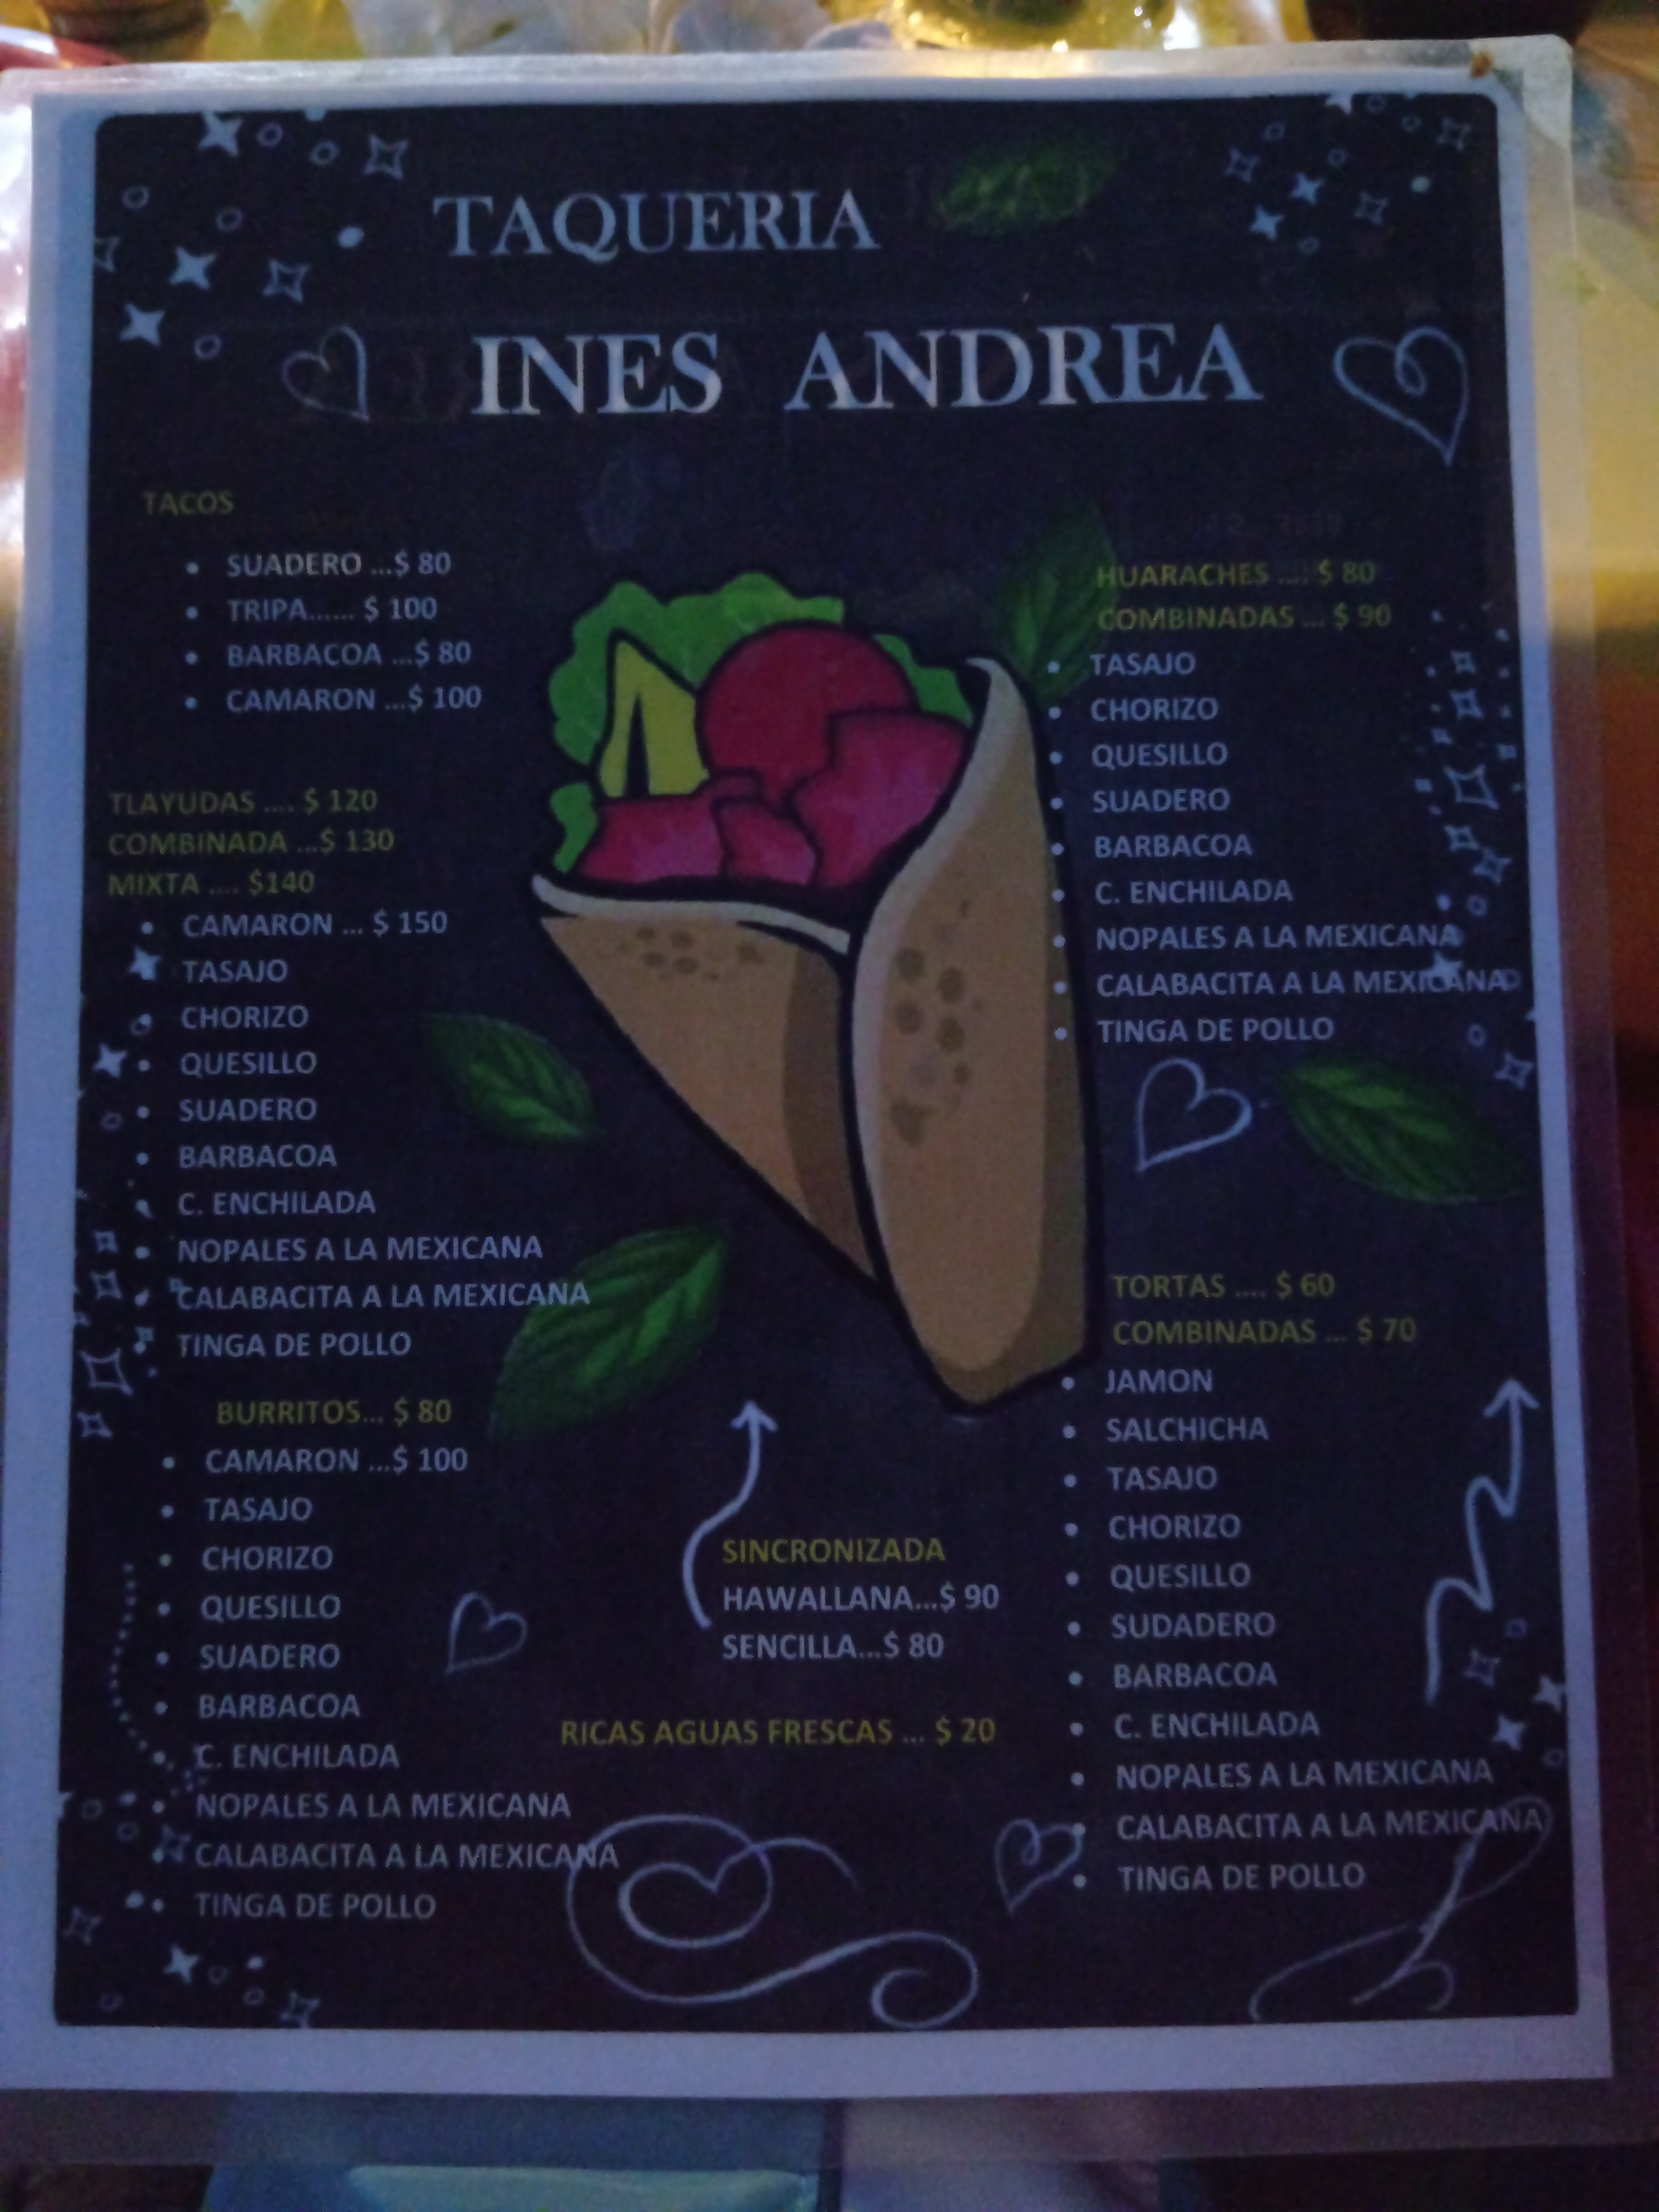 TAQUERIA
INES ANDREA
TACOS
SUADERO ...$ 80
TRIPA...... $ 100
BARBACOA ...$ 80
CAMARON ...$ 100
TLAYUDAS .... $ 120
COMBINADA ...$ 130
MIXTA .... $140
CAMARON ... $ 150
TASAJO
CHORIZO
QUESILLO
SUADERO
BARBACOA
C. ENCHILADA
NOPALES A LA MEXICANA
CALABACITA A LA MEXICANA
TINGA DE POLLO
BURRITOS... $ 80
CAMARON ...$ 100
TASAJO
CHORIZO
QUESILLO
SUADERO
BARBACOA
C. ENCHILADA
NOPALES A LA MEXICANA
CALABACITA A LA MEXICANA
TINGA DE POLLO
SINCRONIZADA
HAWALLANA...$ 90
SENCILLA...$ 80
RICAS AGUAS FRESCAS ... $ 20
HUARACHES .... $ 80
COMBINADAS ... $ 90
TASAJO
CHORIZO
QUESILLO
SUADERO
BARBACOA
C. ENCHILADA
NOPALES A LA MEXICANA
CALABACITA A LA MEXICANA
TINGA DE POLLO
TORTAS .... $ 60
COMBINADAS ... $ 70
JAMON
SALCHICHA
TASAJO
CHORIZO
QUESILLO
SUDADERO
BARBACOA
C. ENCHILADA
NOPALES A LA MEXICANA
CALABACITA A LA MEXICANA
TINGA DE POLLO